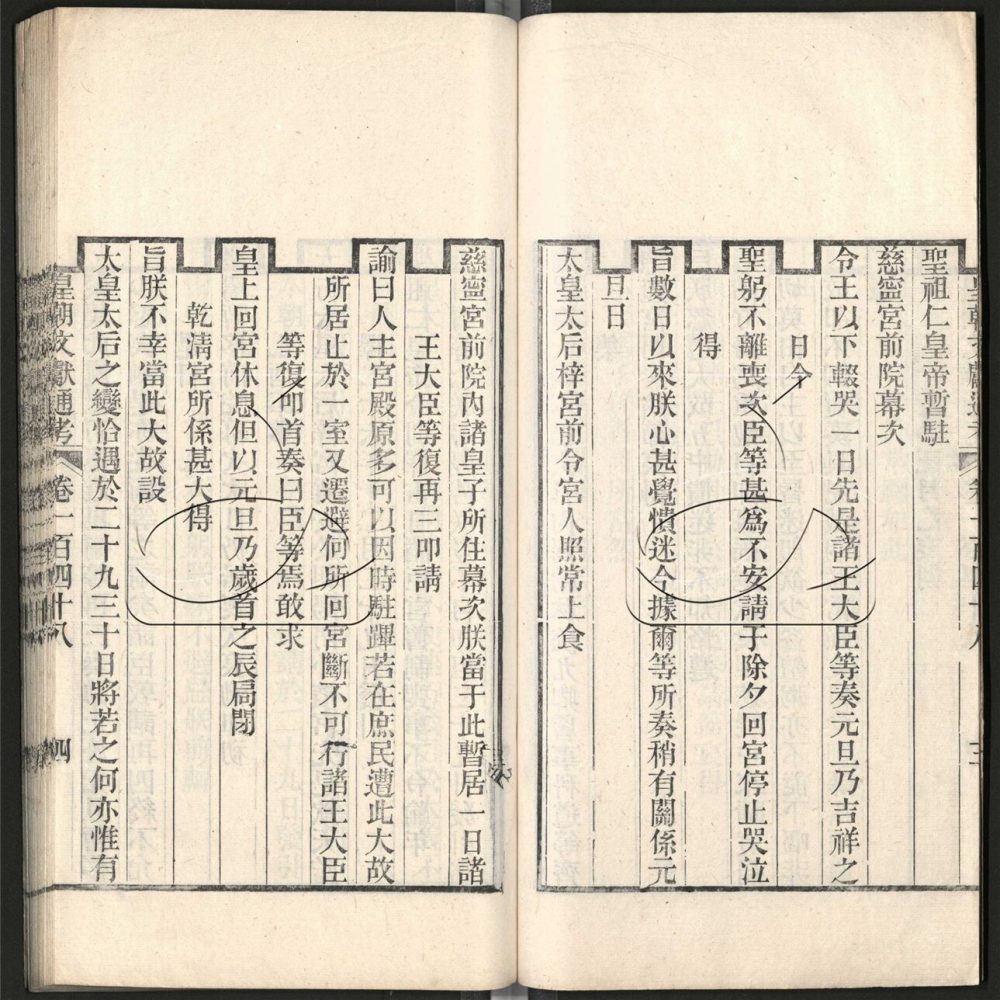 聖祖仁皇帝暫駐
慈寧宮前院幕次
令王以下輟哭一日先是諸王大臣等奏元旦乃吉祥之
日今
聖躬不離喪次臣等甚為不安請于除夕回宮停止哭泣
得
旨數日以來朕心甚覺憒迷今據爾等所奏稍有關係元
旦日
太皇太后梓宮前令宮人照常上食
慈寧宮前院內諸皇子所住幕次朕當于此暫居一日諸
王大臣等復再三叩請
諭曰人主宮殿原多可以因時駐蹕若在庶民遭此大故
所居止於一室又遷避何所回宮斷不可行諸王大臣
等復叩首奏曰臣等焉敢求
皇上回宮休息但以元旦乃歲首之辰局閉
乾清宮所係甚大得
旨朕不幸當此大故設
太皇太后之變恰遇於二十九三十日將若之何亦惟有
皇朝文獻通考 卷一百四十八 四